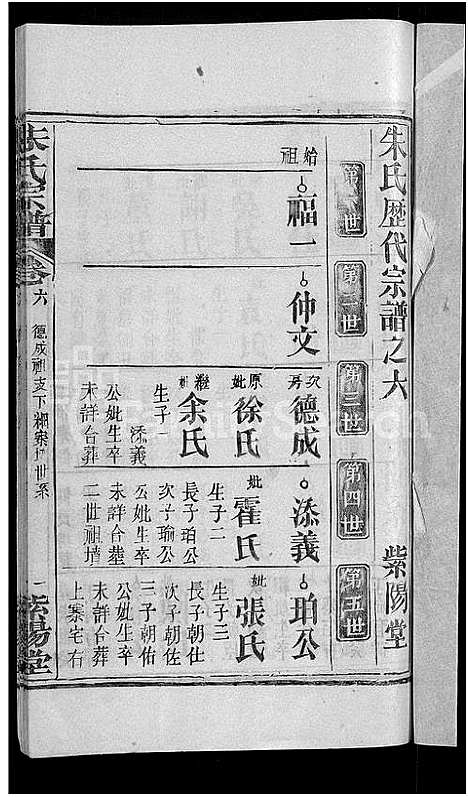 朱氏歷代宗譜之六 紫陽堂
第一世 第二世 第三世 第四世 第五世
始祖 福一
仲文
次房 德成
原妣 徐氏
繼妣 余氏
生子一
添義
公妣生卒
未詳合葬
添義
妣 霍氏
生子二
長子珀公
次子瑜公
公妣生卒
未詳合塟
二世祖墳
珀公
妣 張氏
生子三
長子朝仕
次子朝佐
三子朝佑
公妣生卒
未詳合葬
上寨宅右
朱氏宗譜 卷六 德成祖支下 世系 一 紫陽堂